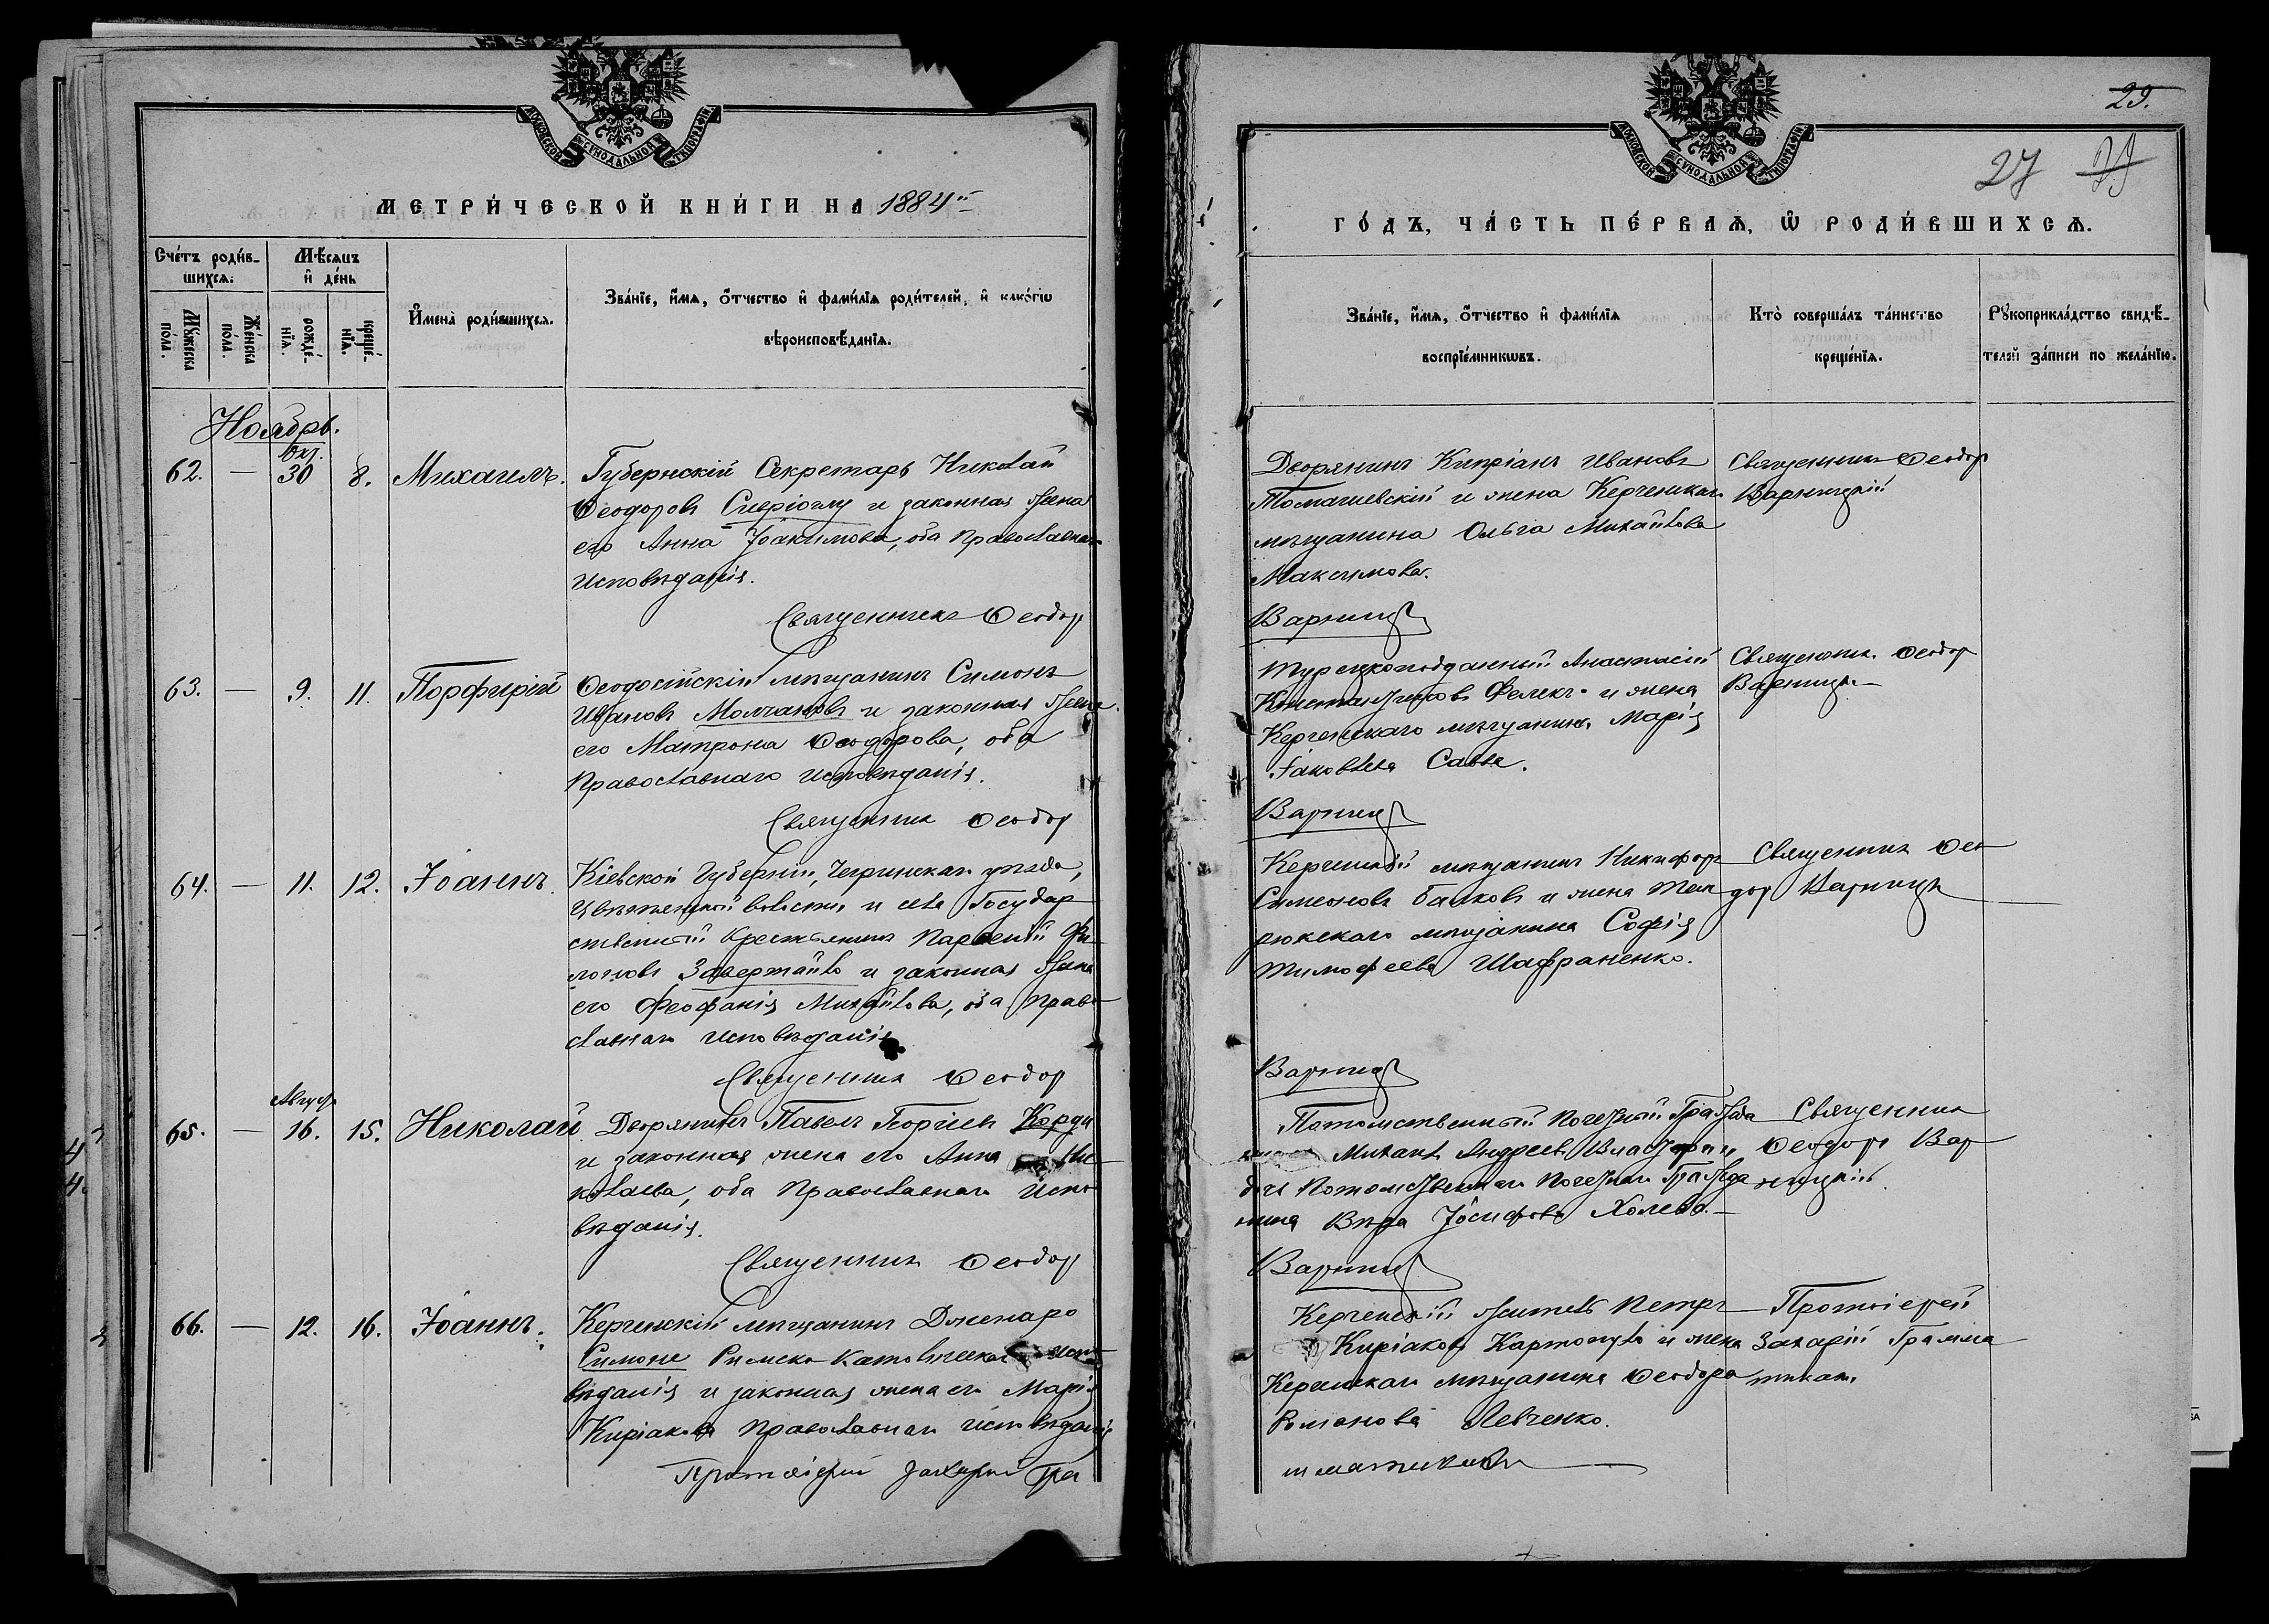 МЕТРИ́ЧЕСКОЙ КНИ́ГИ НА 1884й
Счéтъ роди́в-
шихсѧ.
Мѣ́сяцъ
и̂ дéнь
Мꙋ́жеска
пóла.
Жéнска
пóла.
рождé-
нїѧ.
крещé-
нїѧ.
И̂менà роди́вшихсѧ.
Звáнїе, и̂́мѧ, ѻ̂́тчество и̂ фами́лїѧ роди́телей, и̂ какóгѡ
вѣроисповѣ́данїѧ.
Ноябрь.
Окт.
62. — 30 8. Михаилъ. Губернскій Секретарь Николай
Ѳеодоровъ Сиеріоглу и законная жена
его Анна Іоакимова, оба Православнаго
Исповѣданія.
Священникъ Ѳеодор
63. — 9. 11. Порфирій Ѳеодосійскій мѣщанинъ Симонъ
Ивановъ Молчановъ и законная жена
его Матрона Ѳеодорова, оба
Православнаго исповѣданія.
Священникъ Ѳеодор
64. — 11. 12. Іоаннъ. Кіевской Губерніи, Чигринскаго уѣзда,
волости и села Государ
ственный Крестьянинъ Парѳеній Фи-
лоновъ Завертайло и законная жена
его Феофанія Михайлова, оба Право
славнаго Исповѣданія
Священникъ Ѳеодор
Август
65. — 16. 15. Николай Дворянинъ Павелъ Георгіевъ Корди
и законная жена его Анна Ни-
колаева, оба Православнаго Испо
вѣданія.
Священникъ Ѳеодор
66. — 12. 16. Іоаннъ. Керченскій мѣщанинъ Дженаро
Симоне Римско-Католическаго испо
вѣданія и законная жена его Марія
Киріакова Православнаго исповѣданія
Протоіерей Захарій Гра
29.
27 29
ГÓДЪ, ЧÁСТЬ ПÉРВАѦ, Ѡ̂ РОДИ́ВШИХСѦ.
Звáнїе, и̂́мѧ, ѻ̂́тчество и̂ фами́лїѧ
воспрїéмникѡвъ.
Ктò совершáлъ тáинство
крещéнїѧ.
Рꙋкоприклáдство свидѣ́-
телей зáписи по желáнїю.
Дворянинъ Кипріанъ Ивановъ
Томашевскій и жена Керченскаго
мѣщанина Ольга Михайлова
Максимова.
Священникъ Ѳеодор
Варницкій
Варницкій
Турецкоподданный Анастасій
Константиновъ Фелекъ и жена
Керченскаго мѣщанина Марія
Іаковлева Савва.
Священникъ Ѳеодор
Варницкій
Варницкій
Керченскій мѣщанинъ Никифоръ
Симеоновъ Балковъ и жена Тем
рюкскаго мѣщанина Софія
Тимофеева Шафраненко.
Священникъ Ѳео
дор Варницкій
Варницкій
Потомственный Почетный Гражда
нинъ Михаилъ Андреевъ и
дочь Потомственнаго Почетнаго Гражда
нина Вѣра Іосифова Холева.
Священникъ
Ѳеодоръ Вар
ницкій.
Варницкій
Керченскій житель Петръ
Киріаковъ и жена
Керченскаго мѣщанина Ѳеодора
Романова Левченко.
Протоіерей
Захарій Грамма
тикати
мматикати